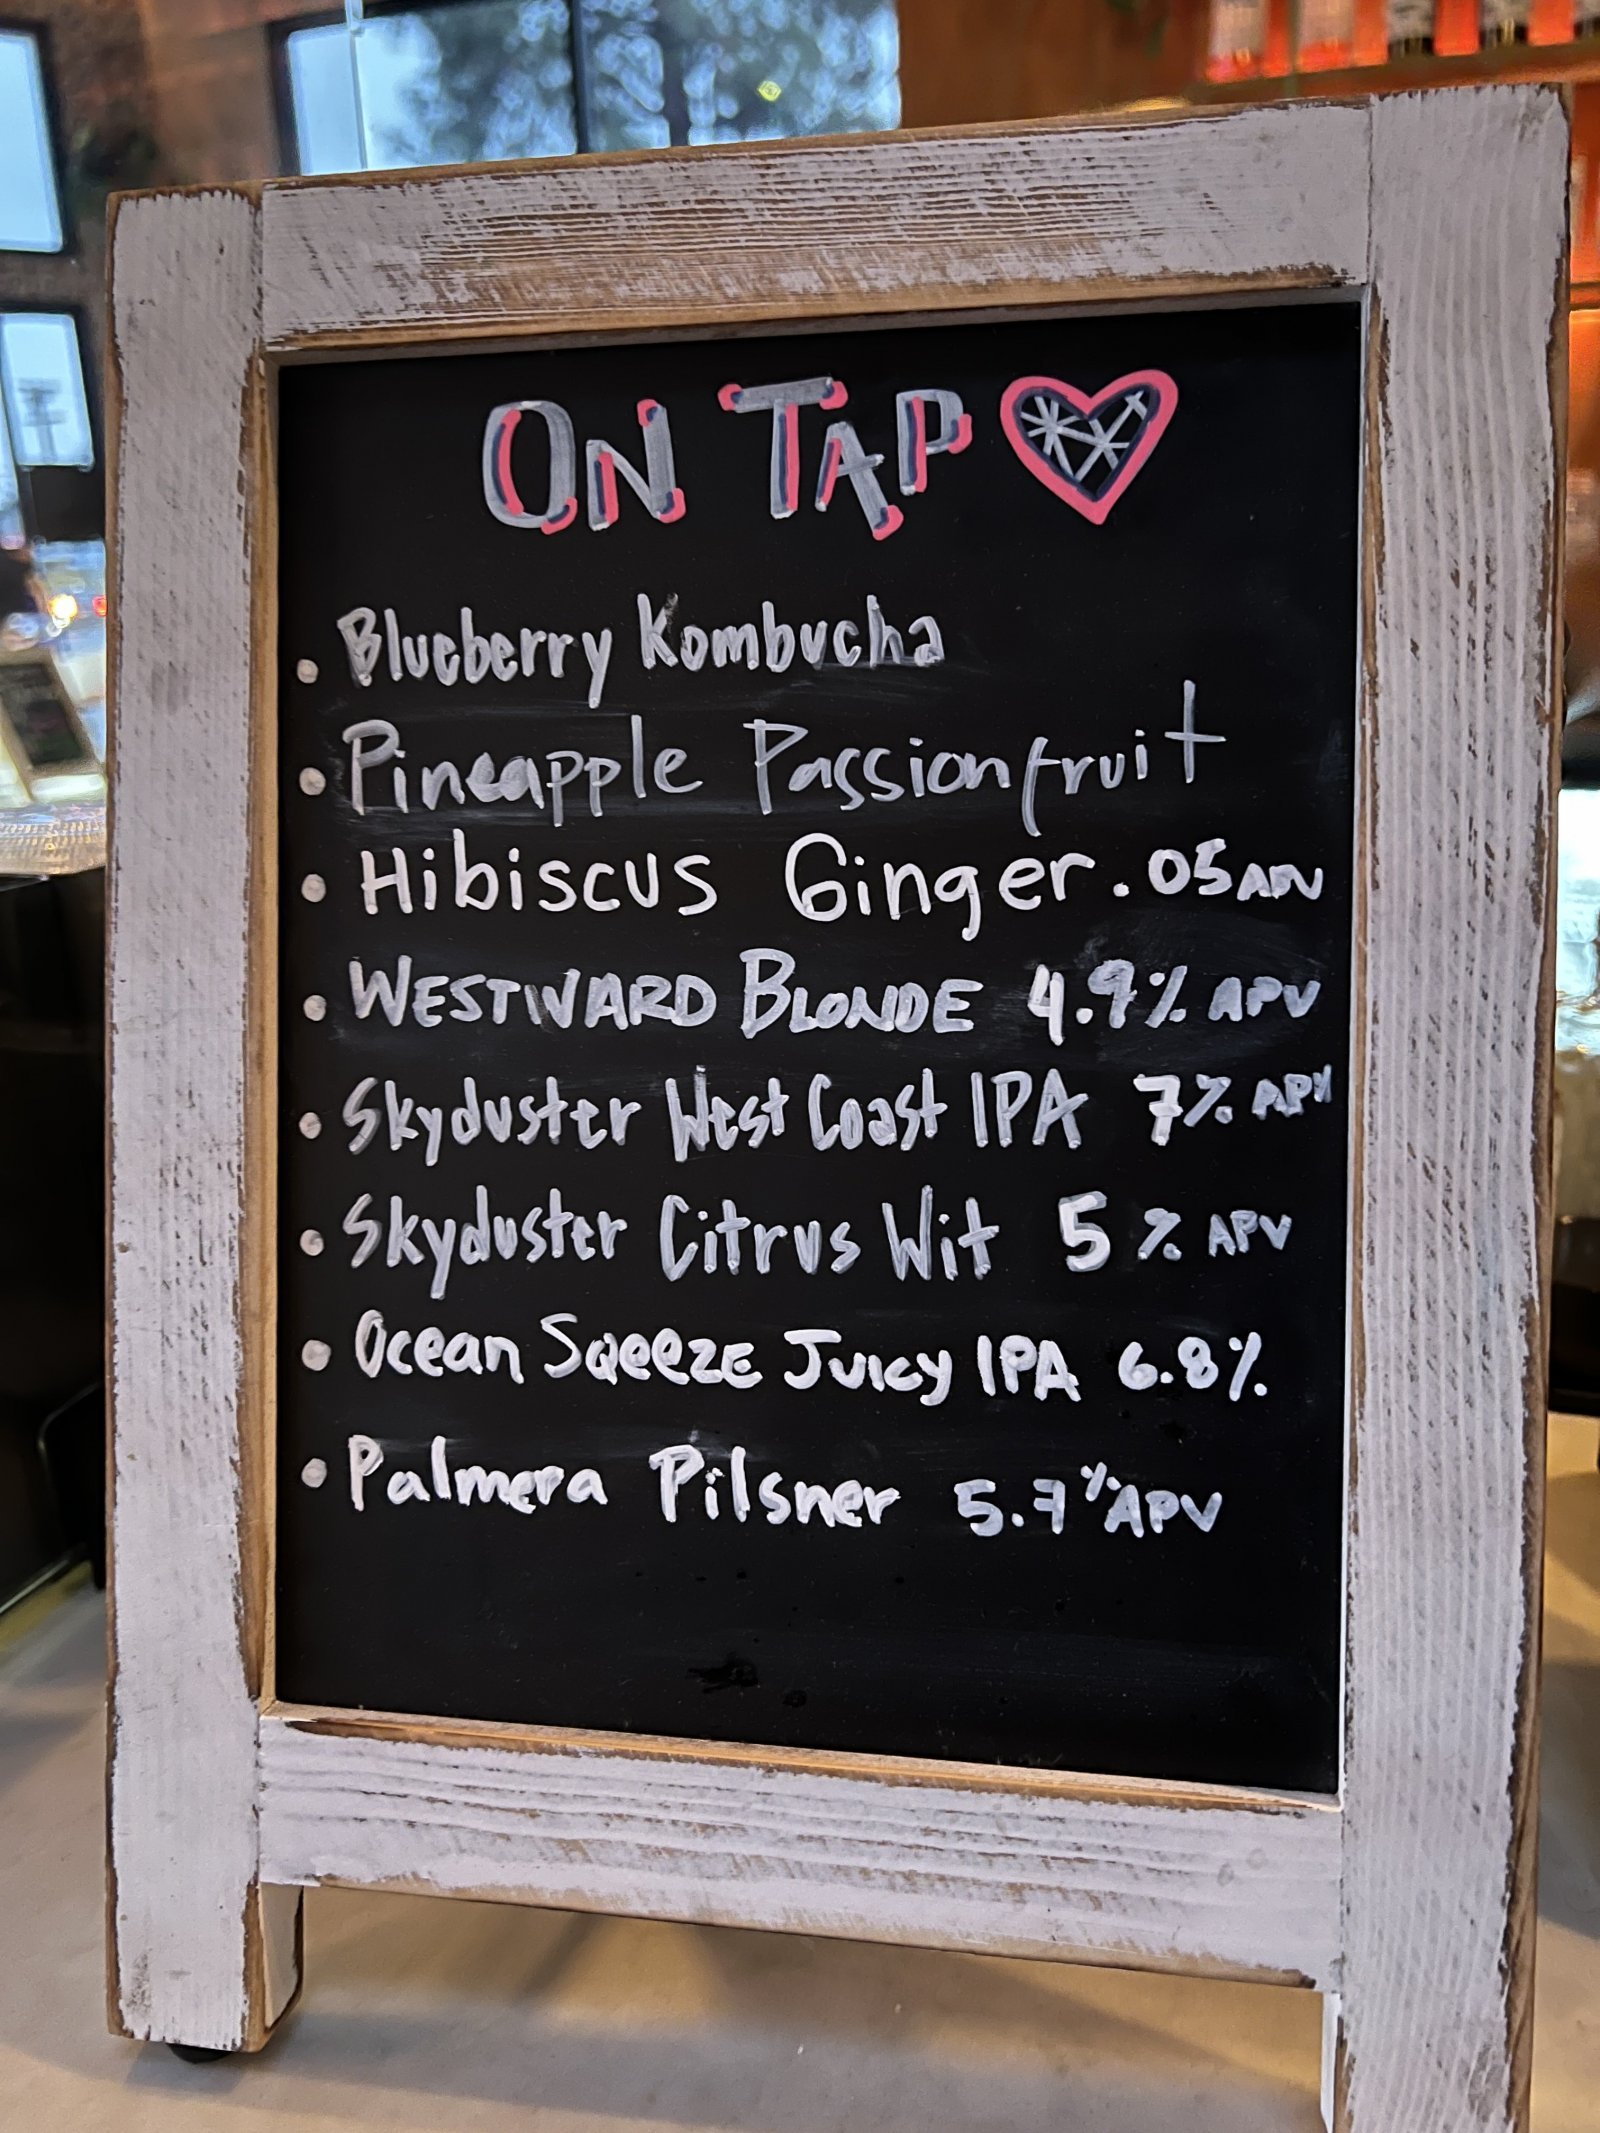 ON TAP
• Blueberry Kombucha
• Pineapple Passionfruit
• Hibiscus Ginger .05 APV
• WESTWARD BLONDE 4.9% APV
• Skyduster West Coast IPA 7% APV
• Skyduster Citrus Wit 5% APV
• Ocean SqeezE Juicy IPA 6.8%
• Palmera Pilsner 5.7% APV